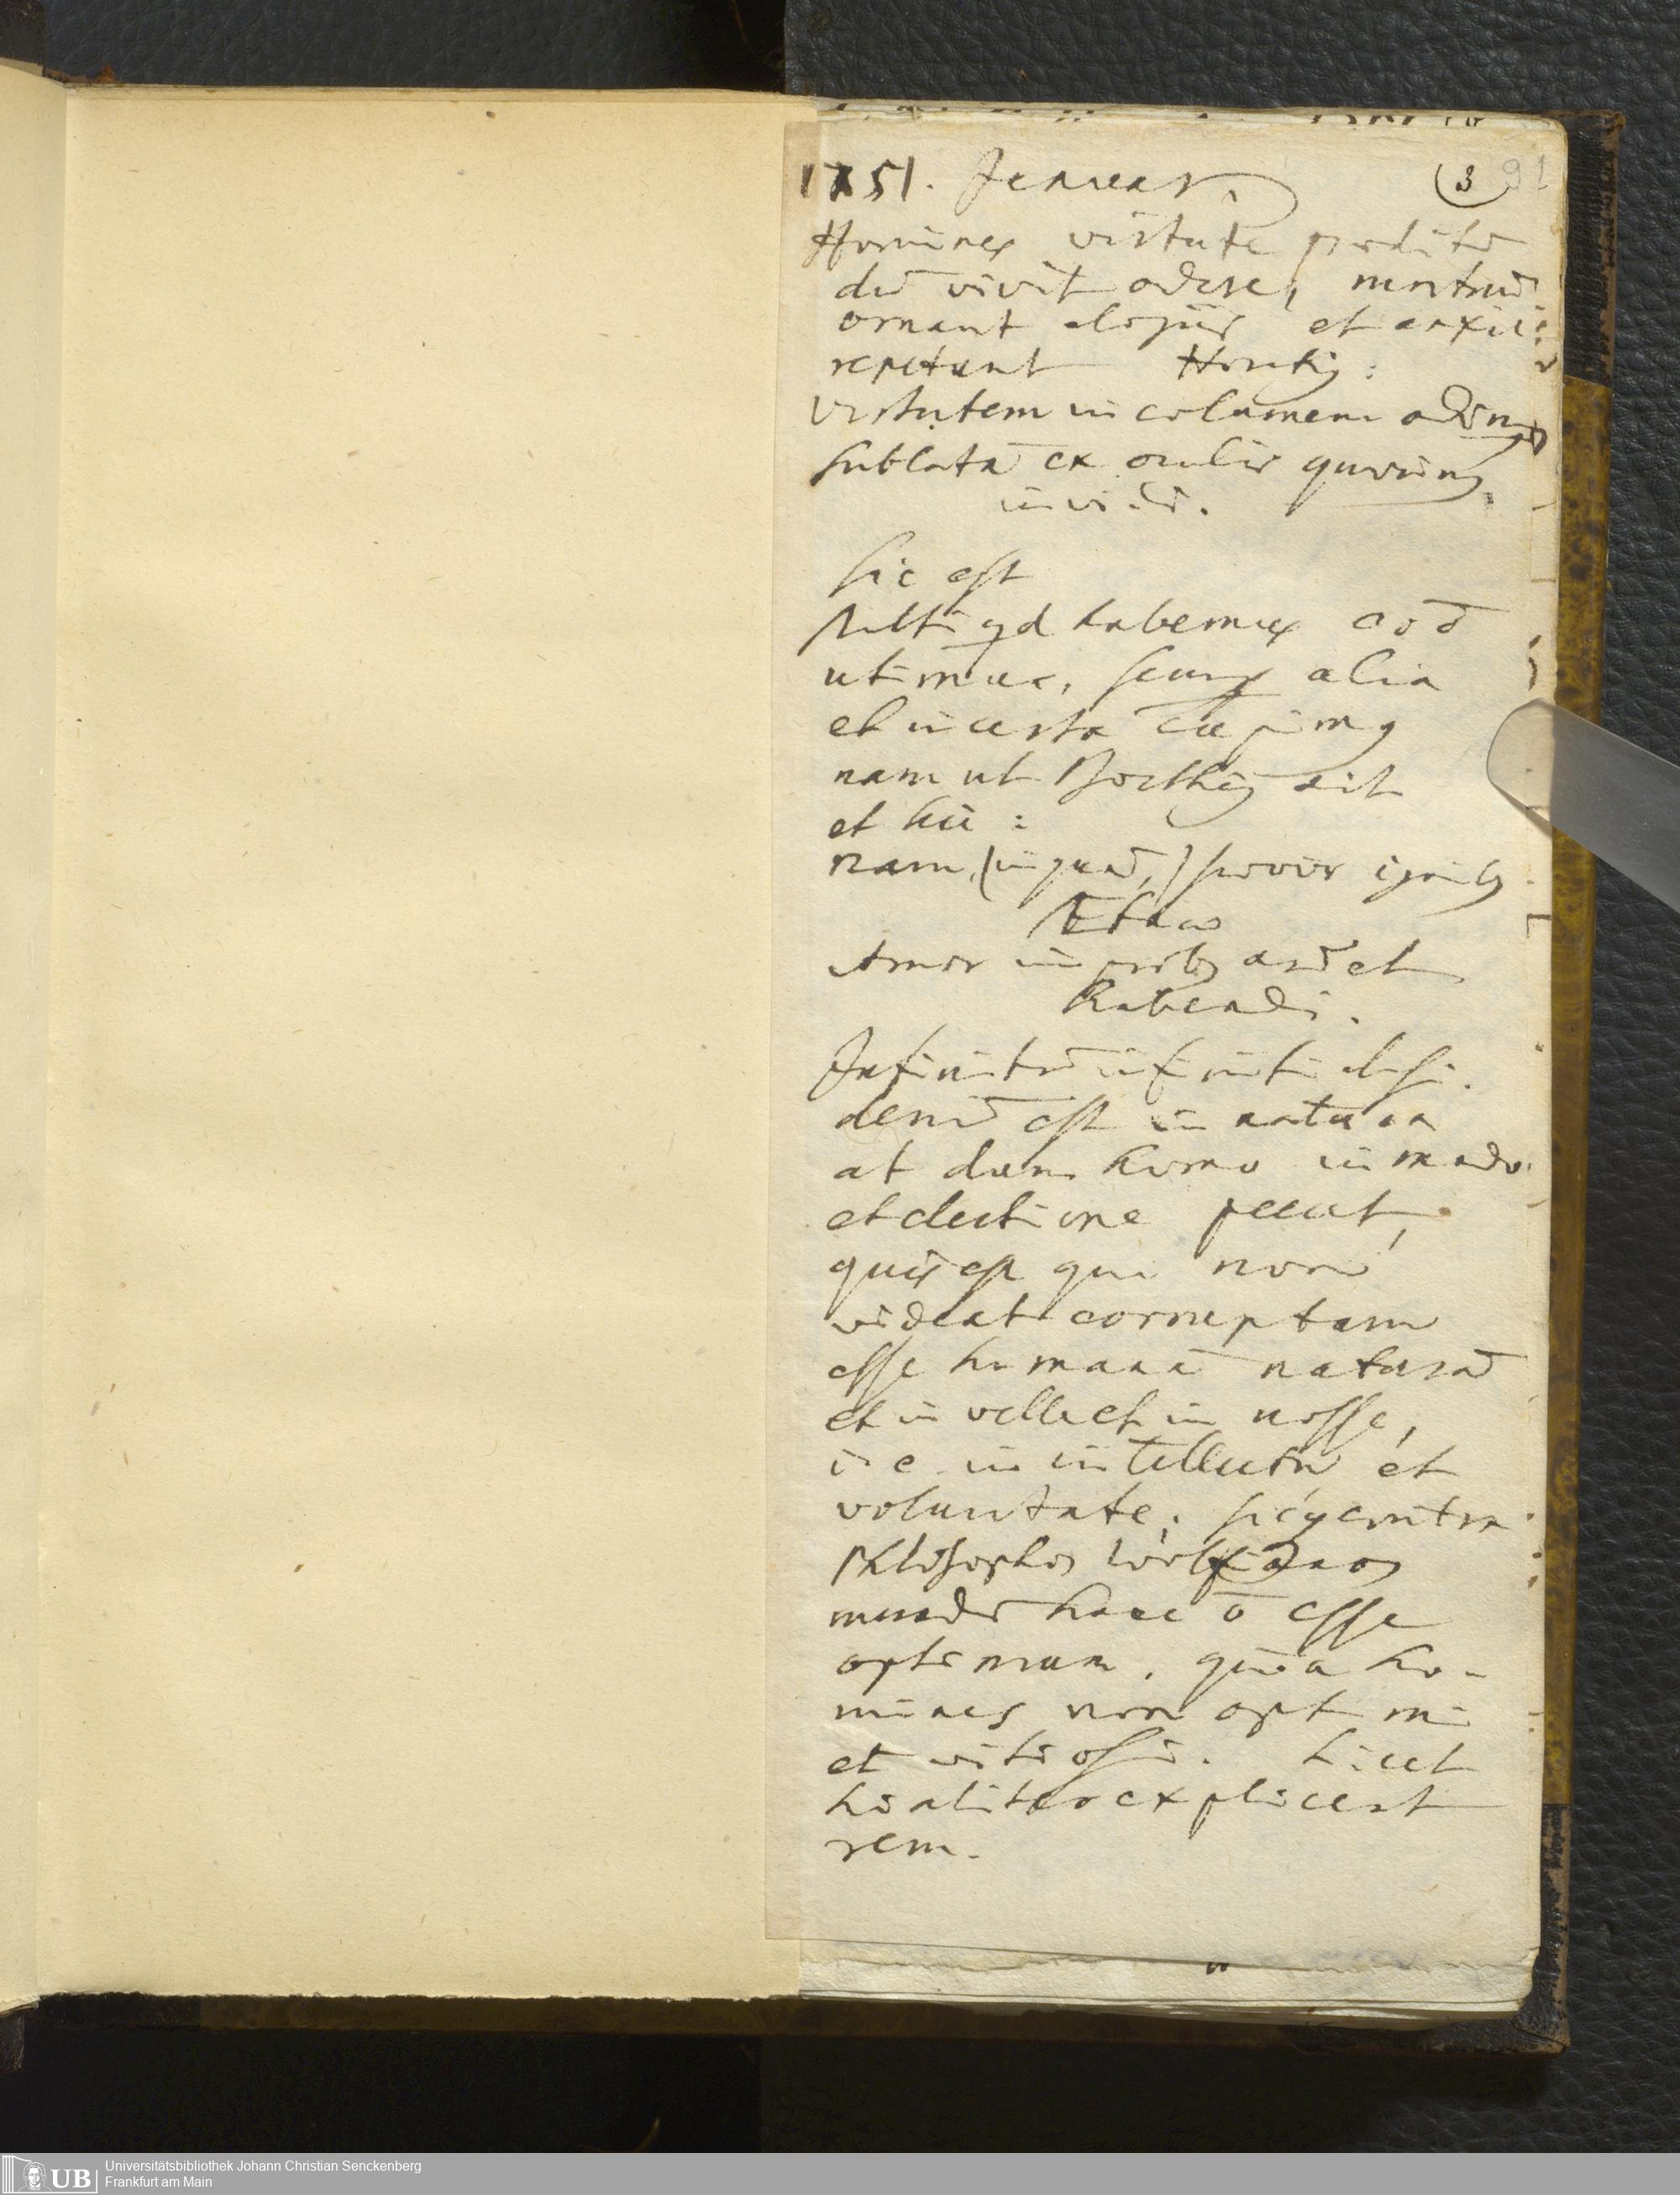 1751. Januar.
3 91
Homines virtute preditū
dū vivit odere, mortuū
ornant elogiis et anxii
repetunt Horatiꝰ:
Virtutem incolumem odimꝰ
sublatā ex oculis querimꝰ
invidi.
sic est
stulti qd habemus nō
utimur, semp alia
et incerta cupimꝰ
nam ut Boethiꝰ ait
et hic:
nam, (inquā,) sævior ignibꝰ
Ætnæ
Amor improbꝰ ardet
habendi.
Infinitū infiniti desi-
deriū est in natura
at dum homo in modo
et electione peccat,
quis est qui non
videat corruptam
esse humanā naturā
et in velle et in nosse,
i. e. in intellectu et
voluntate; sicq contra
Philosophos Wolfianos
mundū hunc ō esse
optimum, quia ho-
mines non optimi
et vitiosi. Licet
hi aliter explicent
rem.
UB
Universitätsbibliothek Johann Christian Senckenberg
Frankfurt am Main